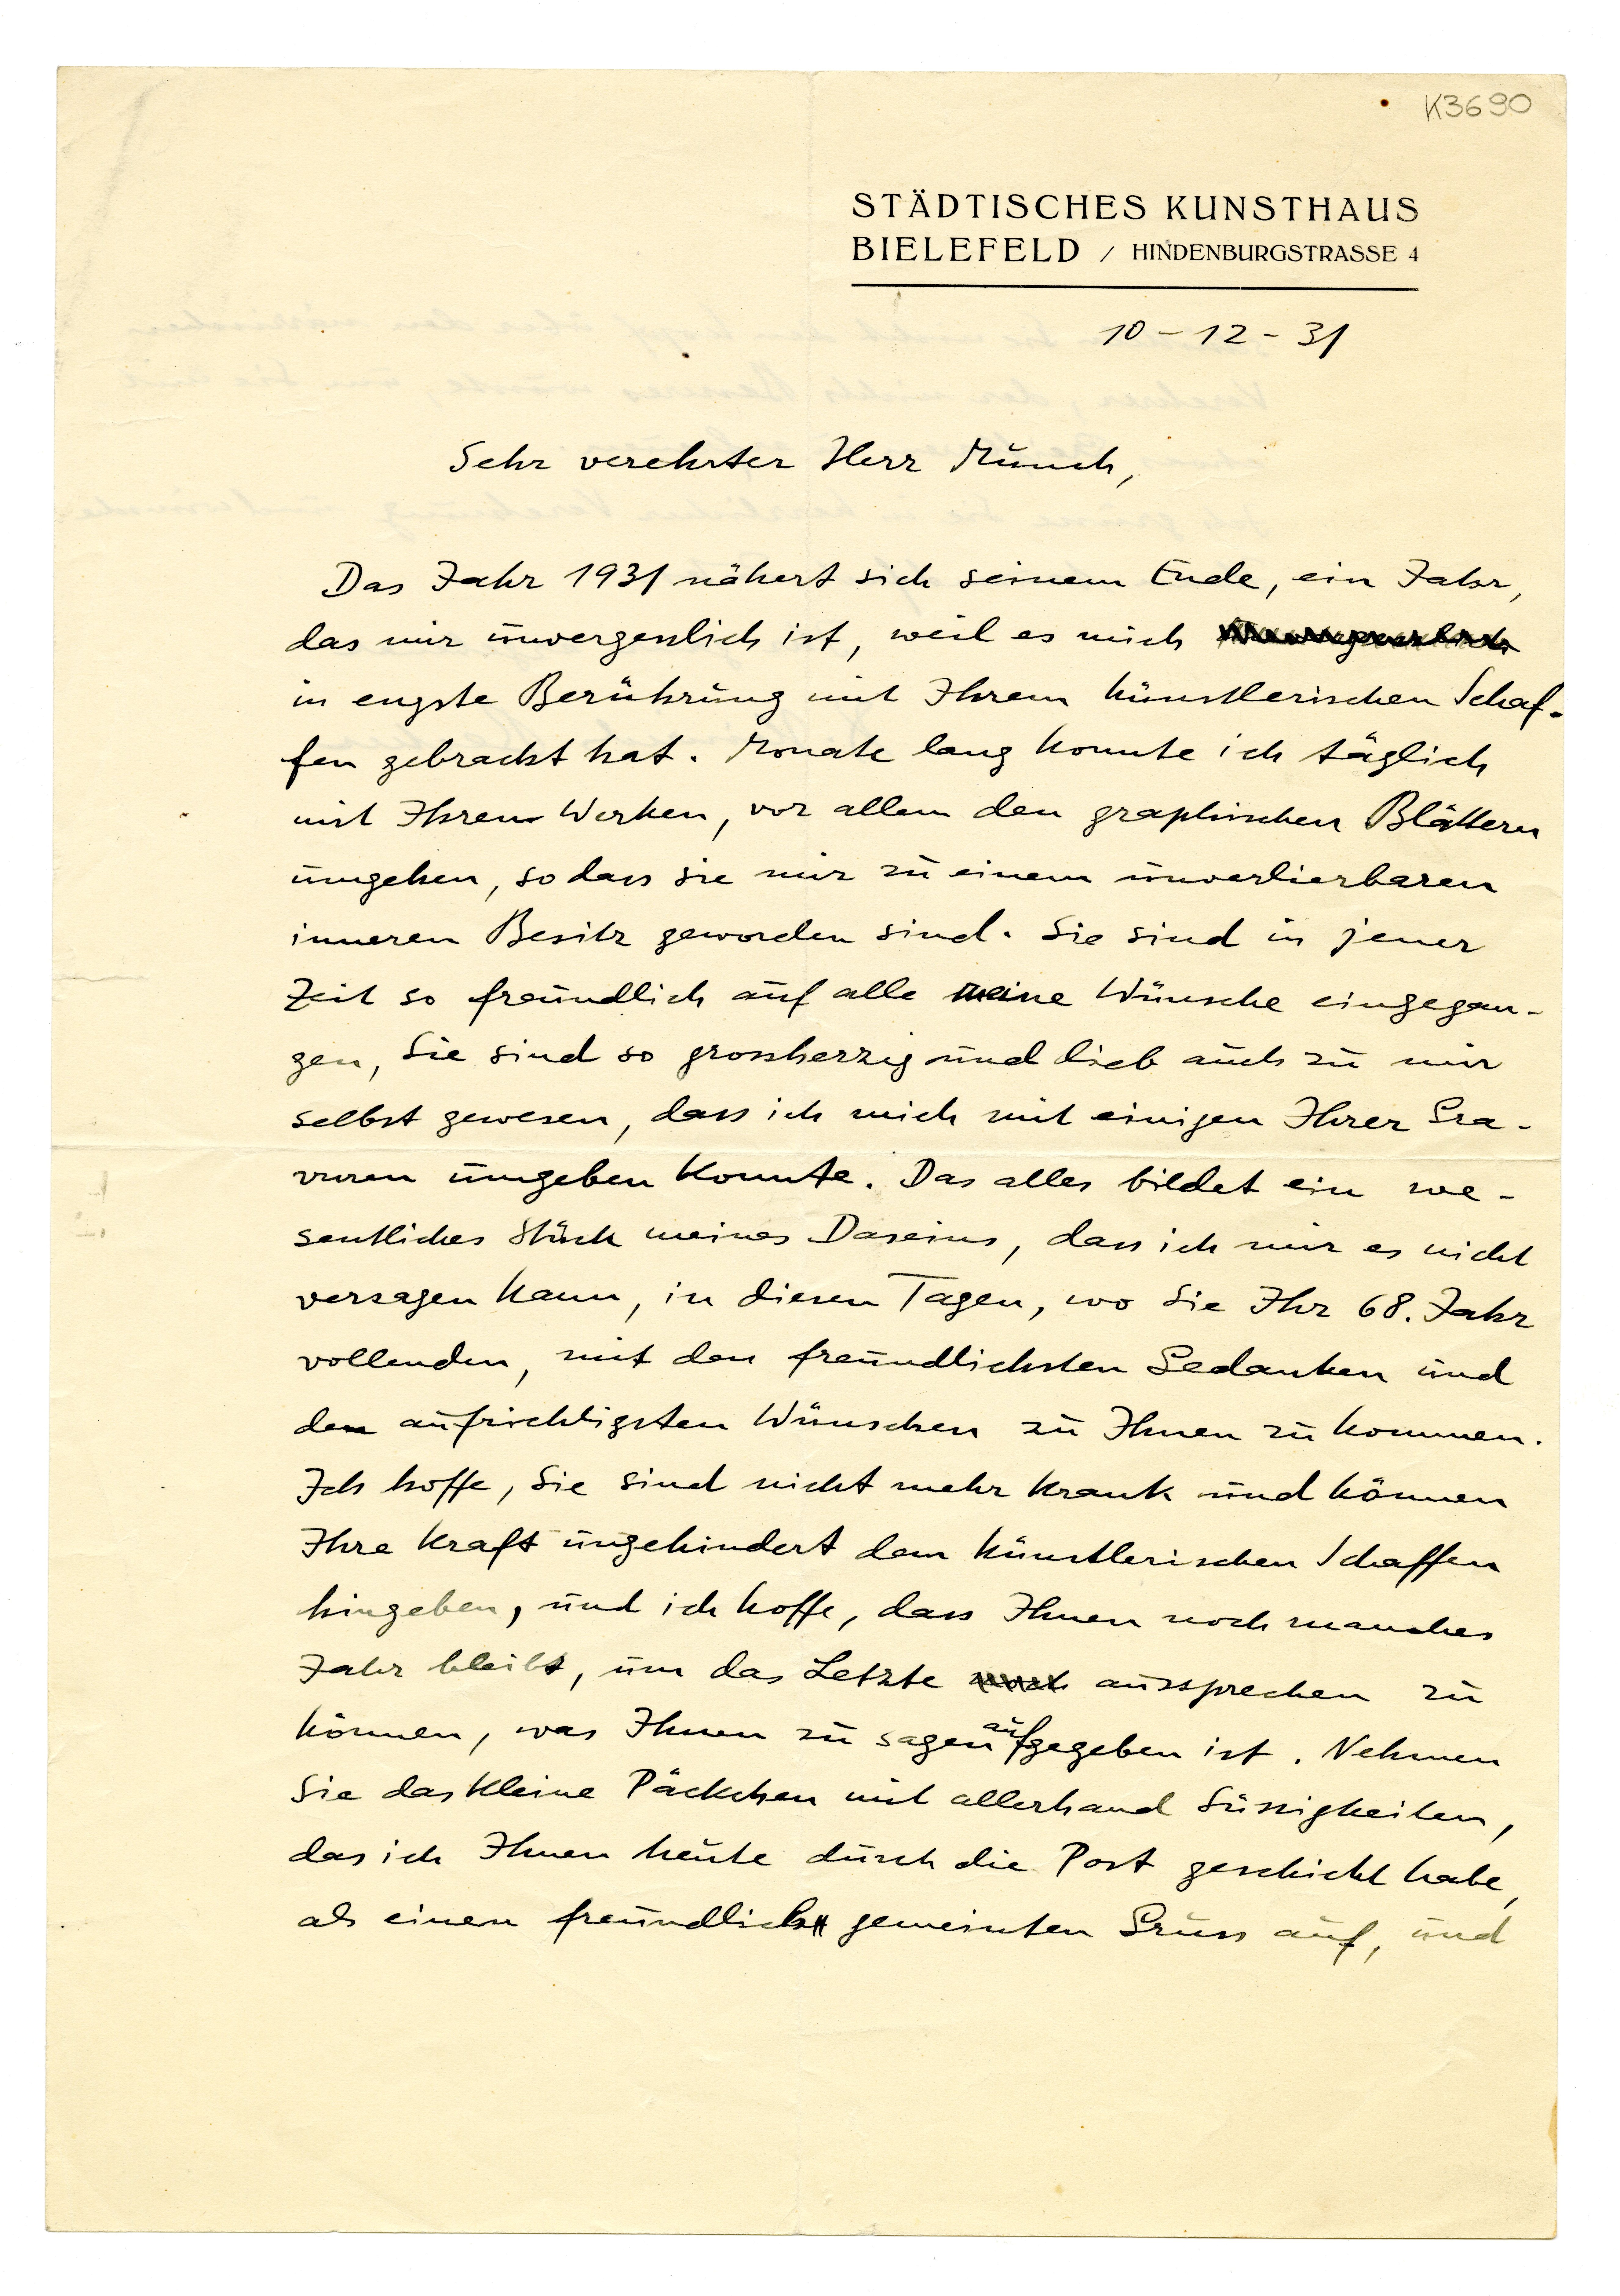 K3690
STÄDTISCHES KUNSTHAUS
BIELEFELD / HINDENBURGSTRASSE 4
10-12-31
Sehr verehrter Herr Munch,
Das Jahr 1931 nähert sich seinem Ende, ein Jahr,
das mir unvergesslich ist, weil es mich
in engste Berührung mit Ihrem künstlerischen Schaf-
fen gebracht hat. Monate lang konnte ich täglich
mit Ihren Werken, vor allem den graphischen Blättern
umgehen, so dass sie mir zu einem unverlierbaren
inneren Besitz geworden sind. Sie sind in jener
Zeit so freundlich auf alle meine Wünsche eingegan-
gen, Sie sind so grossherzig und lieb auch zu mir
selbst gewesen, dass ich mich mit einigen Ihrer Gra-
vuren umgeben konnte. Das alles bildet ein we-
sentliches Stück meines Daseins, dass ich mir es nicht
versagen kann, in diesen Tagen, wo Sie Ihr 68. Jahr
vollenden, mit den freundlichsten Gedanken und
den aufrichtigsten Wünschen zu Ihnen zu kommen.
Ich hoffe, Sie sind nicht mehr krank und können
Ihre Kraft ungehindert dem künstlerischen Schaffen
hingeben, und ich hoffe, dass Ihnen noch manches
Jahr bleibt, um das Letzte aussprechen zu
können, was Ihnen zu sagen aufgegeben ist. Nehmen
Sie das kleine Päckchen mit allerhand Süssigkeiten,
das ich Ihnen heute durch die Post geschickt habe,
als einen freundlich gemeinten Gruss auf, und